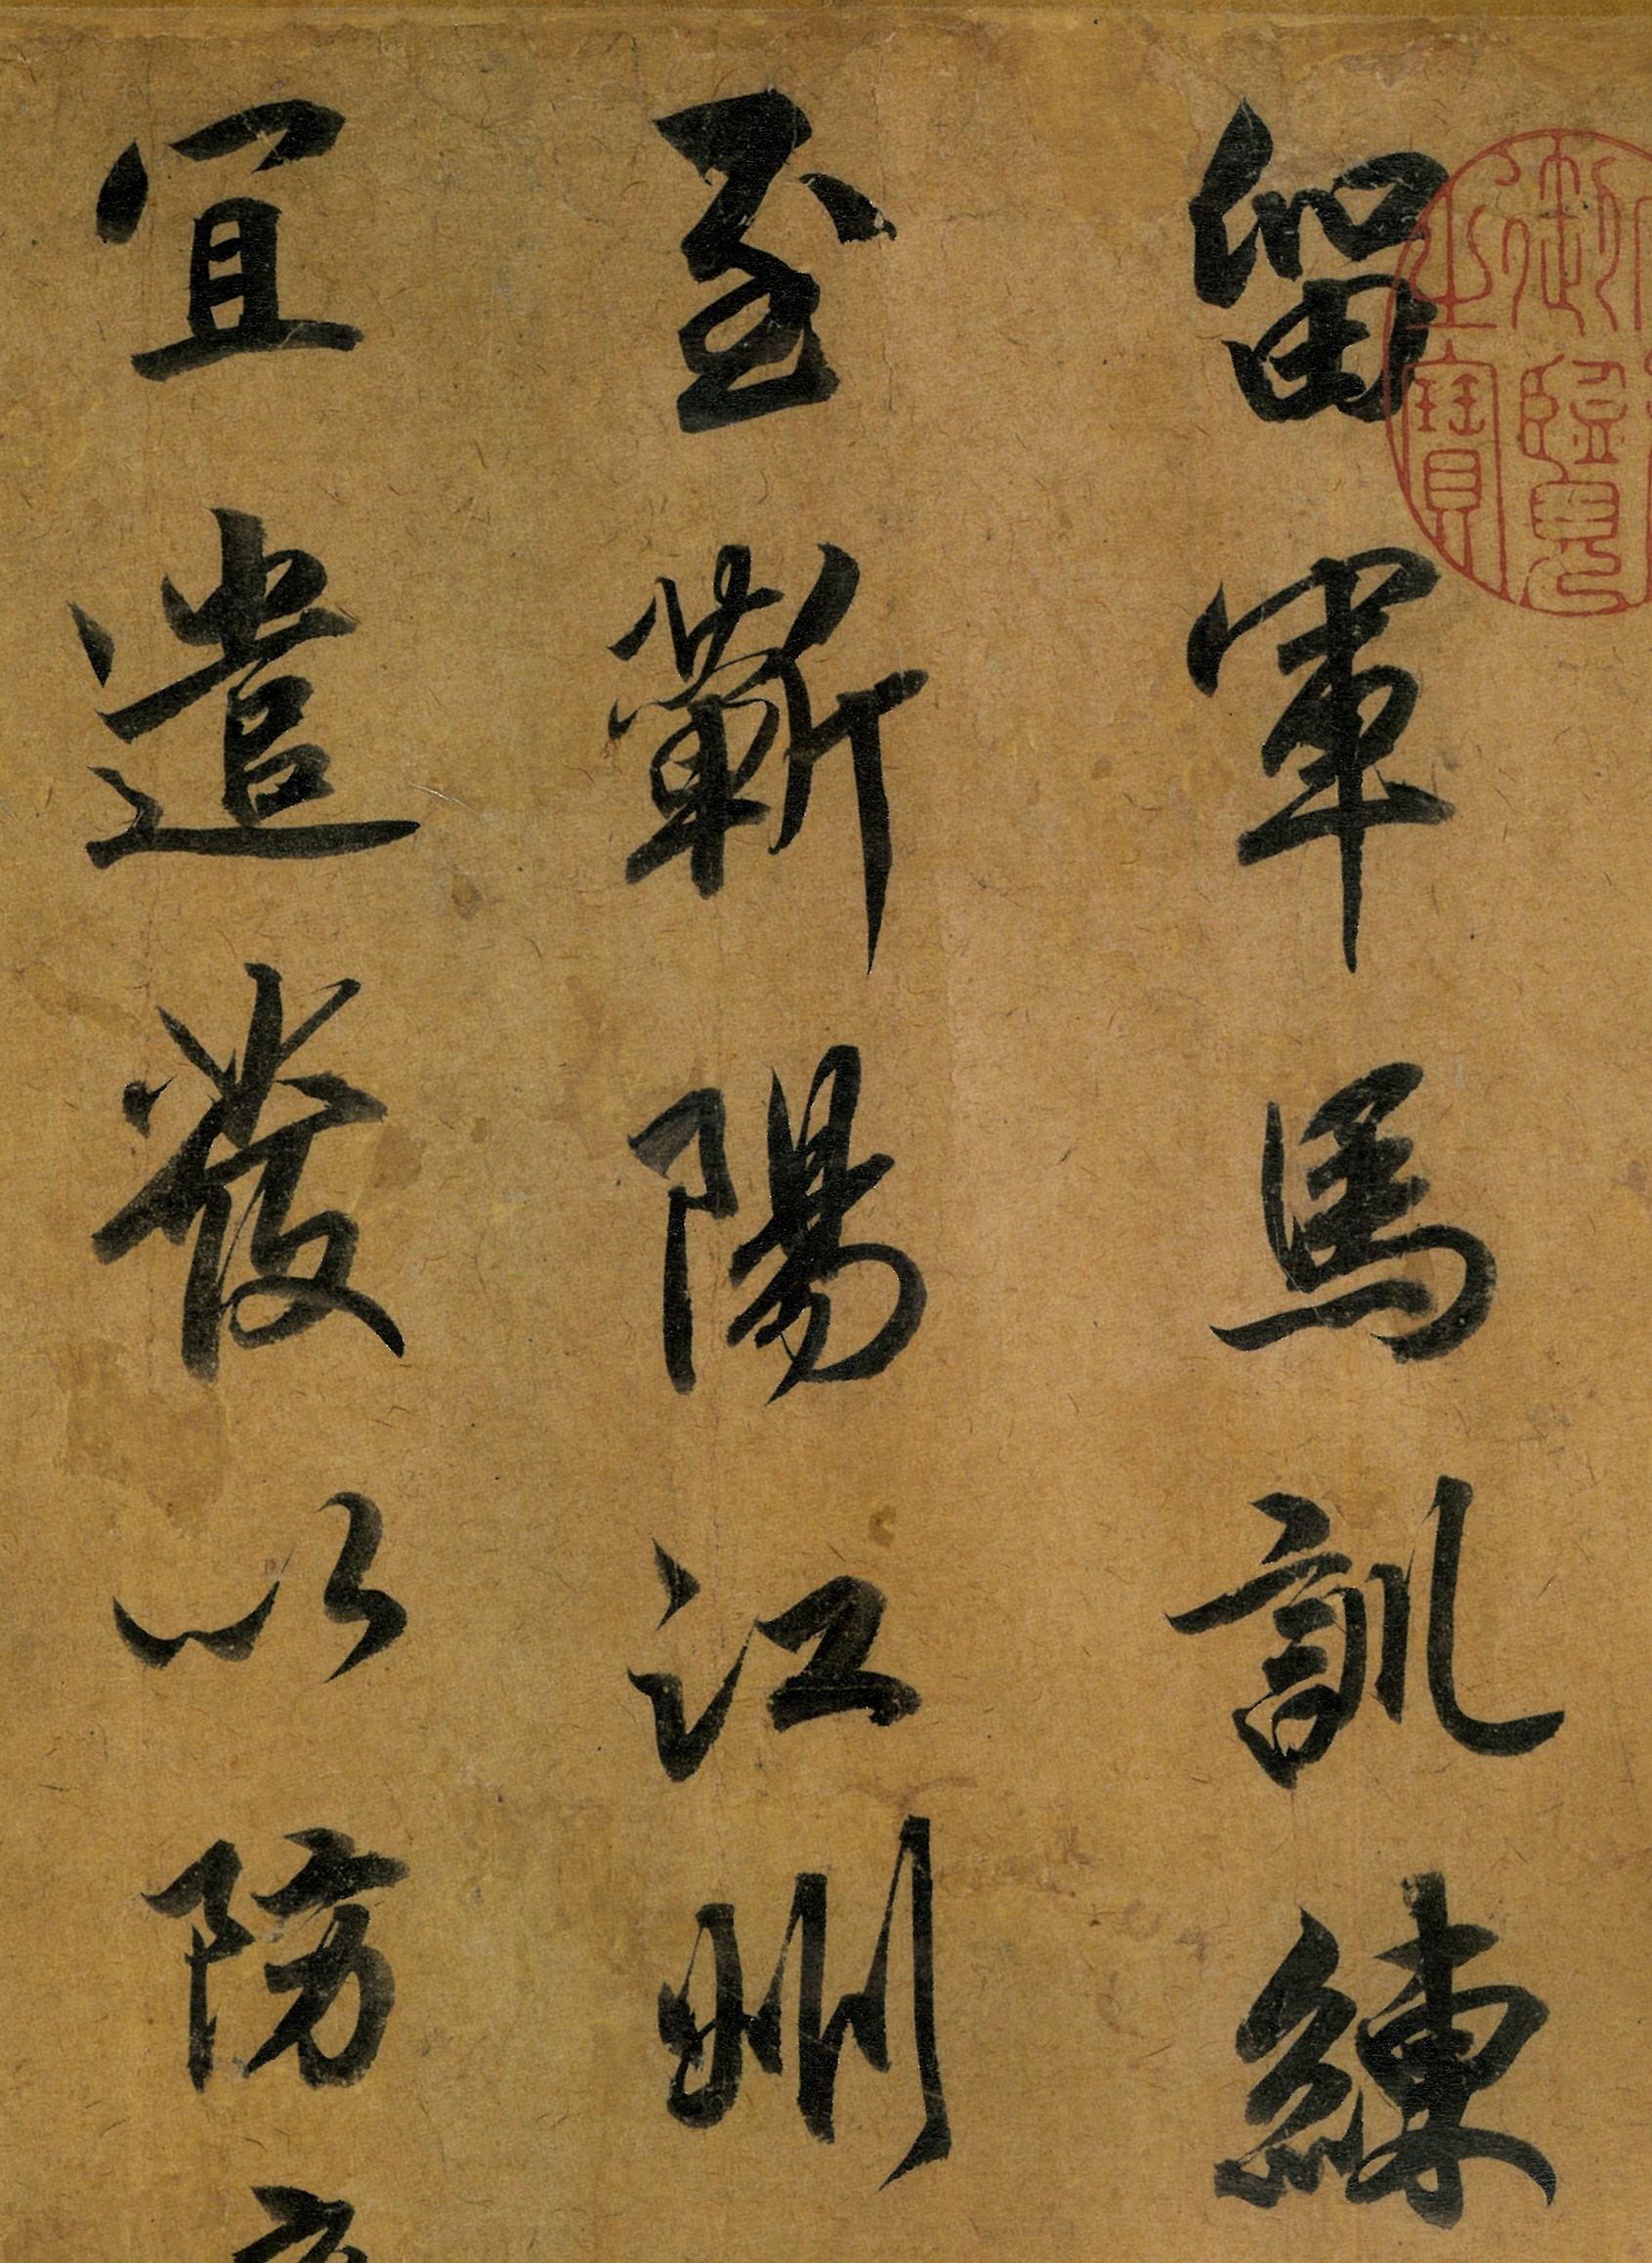 留軍馬訓練
至蘄陽江州
宜遣發以防